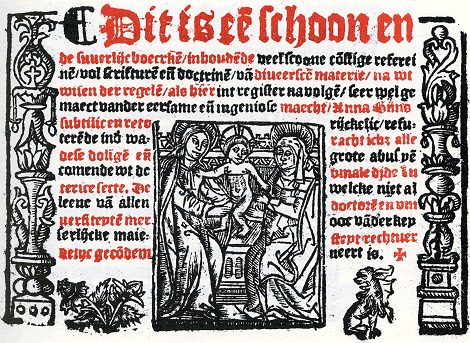 Dit is eē schoon en
de suuerlijc boecxkē / inhoudēde veel scoone cōstige referei
nē / vol scrifturē eñ doctrinē / vā diueerscē materiē / na wt
wisen der regelē / als hier int register na volgē / seer wel ge
maect vander eersame eñ ingeniose maecht / Anna Bijns
subtilic en reto rijckelic / refu
terēde inð wa racht alle
dese dolīgē eñ grote abusē
comende wt de vmaledide Lu
terice secte. De welcke niet al
leene vā allen doctorē eñ vni
uersiteytē mer ooc vāder key
serlijcke maie- steyt rechtuer
gecōdem neert is. ✠